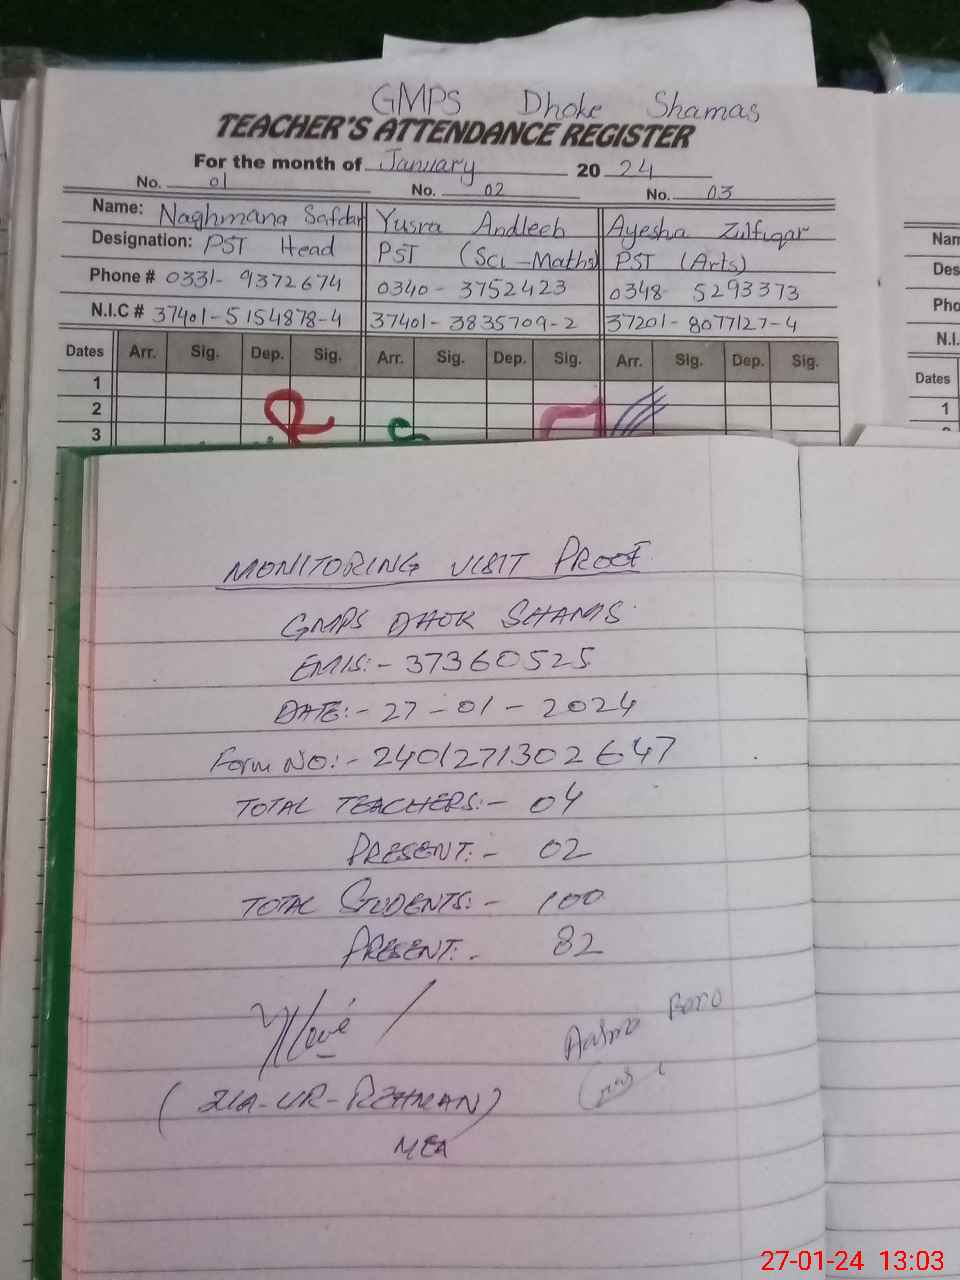 GMPS Dhoke Shamas
TEACHER'S ATTENDANCE REGISTER
For the month of January 2024
No. 01 No. 02 No. 03
Name: Naghmana Safdar Yusra Andleeb Ayesha Zulfiqar
Designation: PST Head PST (Sci-Maths) PST (Arts)
Phone # 0331- 9372674 0340- 3752423 0348- 5293373
N.I.C # 37401-5154878-4 37401-3835709-2 37201-8077127-4
Dates Arr. Sig. Dep. Sig. Arr. Sig. Dep. Sig. Arr. Sig. Dep. Sig.
1
2
3
Nam
Des
Pho
N.I.
Dates
1
MONITORING VISIT PROOF
GMPS DHOK SHAMS
EMIS:- 37360525
DATE:- 27-01-2024
Form NO:- 2401271302647
TOTAL TEACHERS:- 04
PRESENT:- 02
TOTAL STUDENTS:- 100
PRESENT:- 82
(ZIA-UR-REHMAN)
MEA
27-01-24 13:03